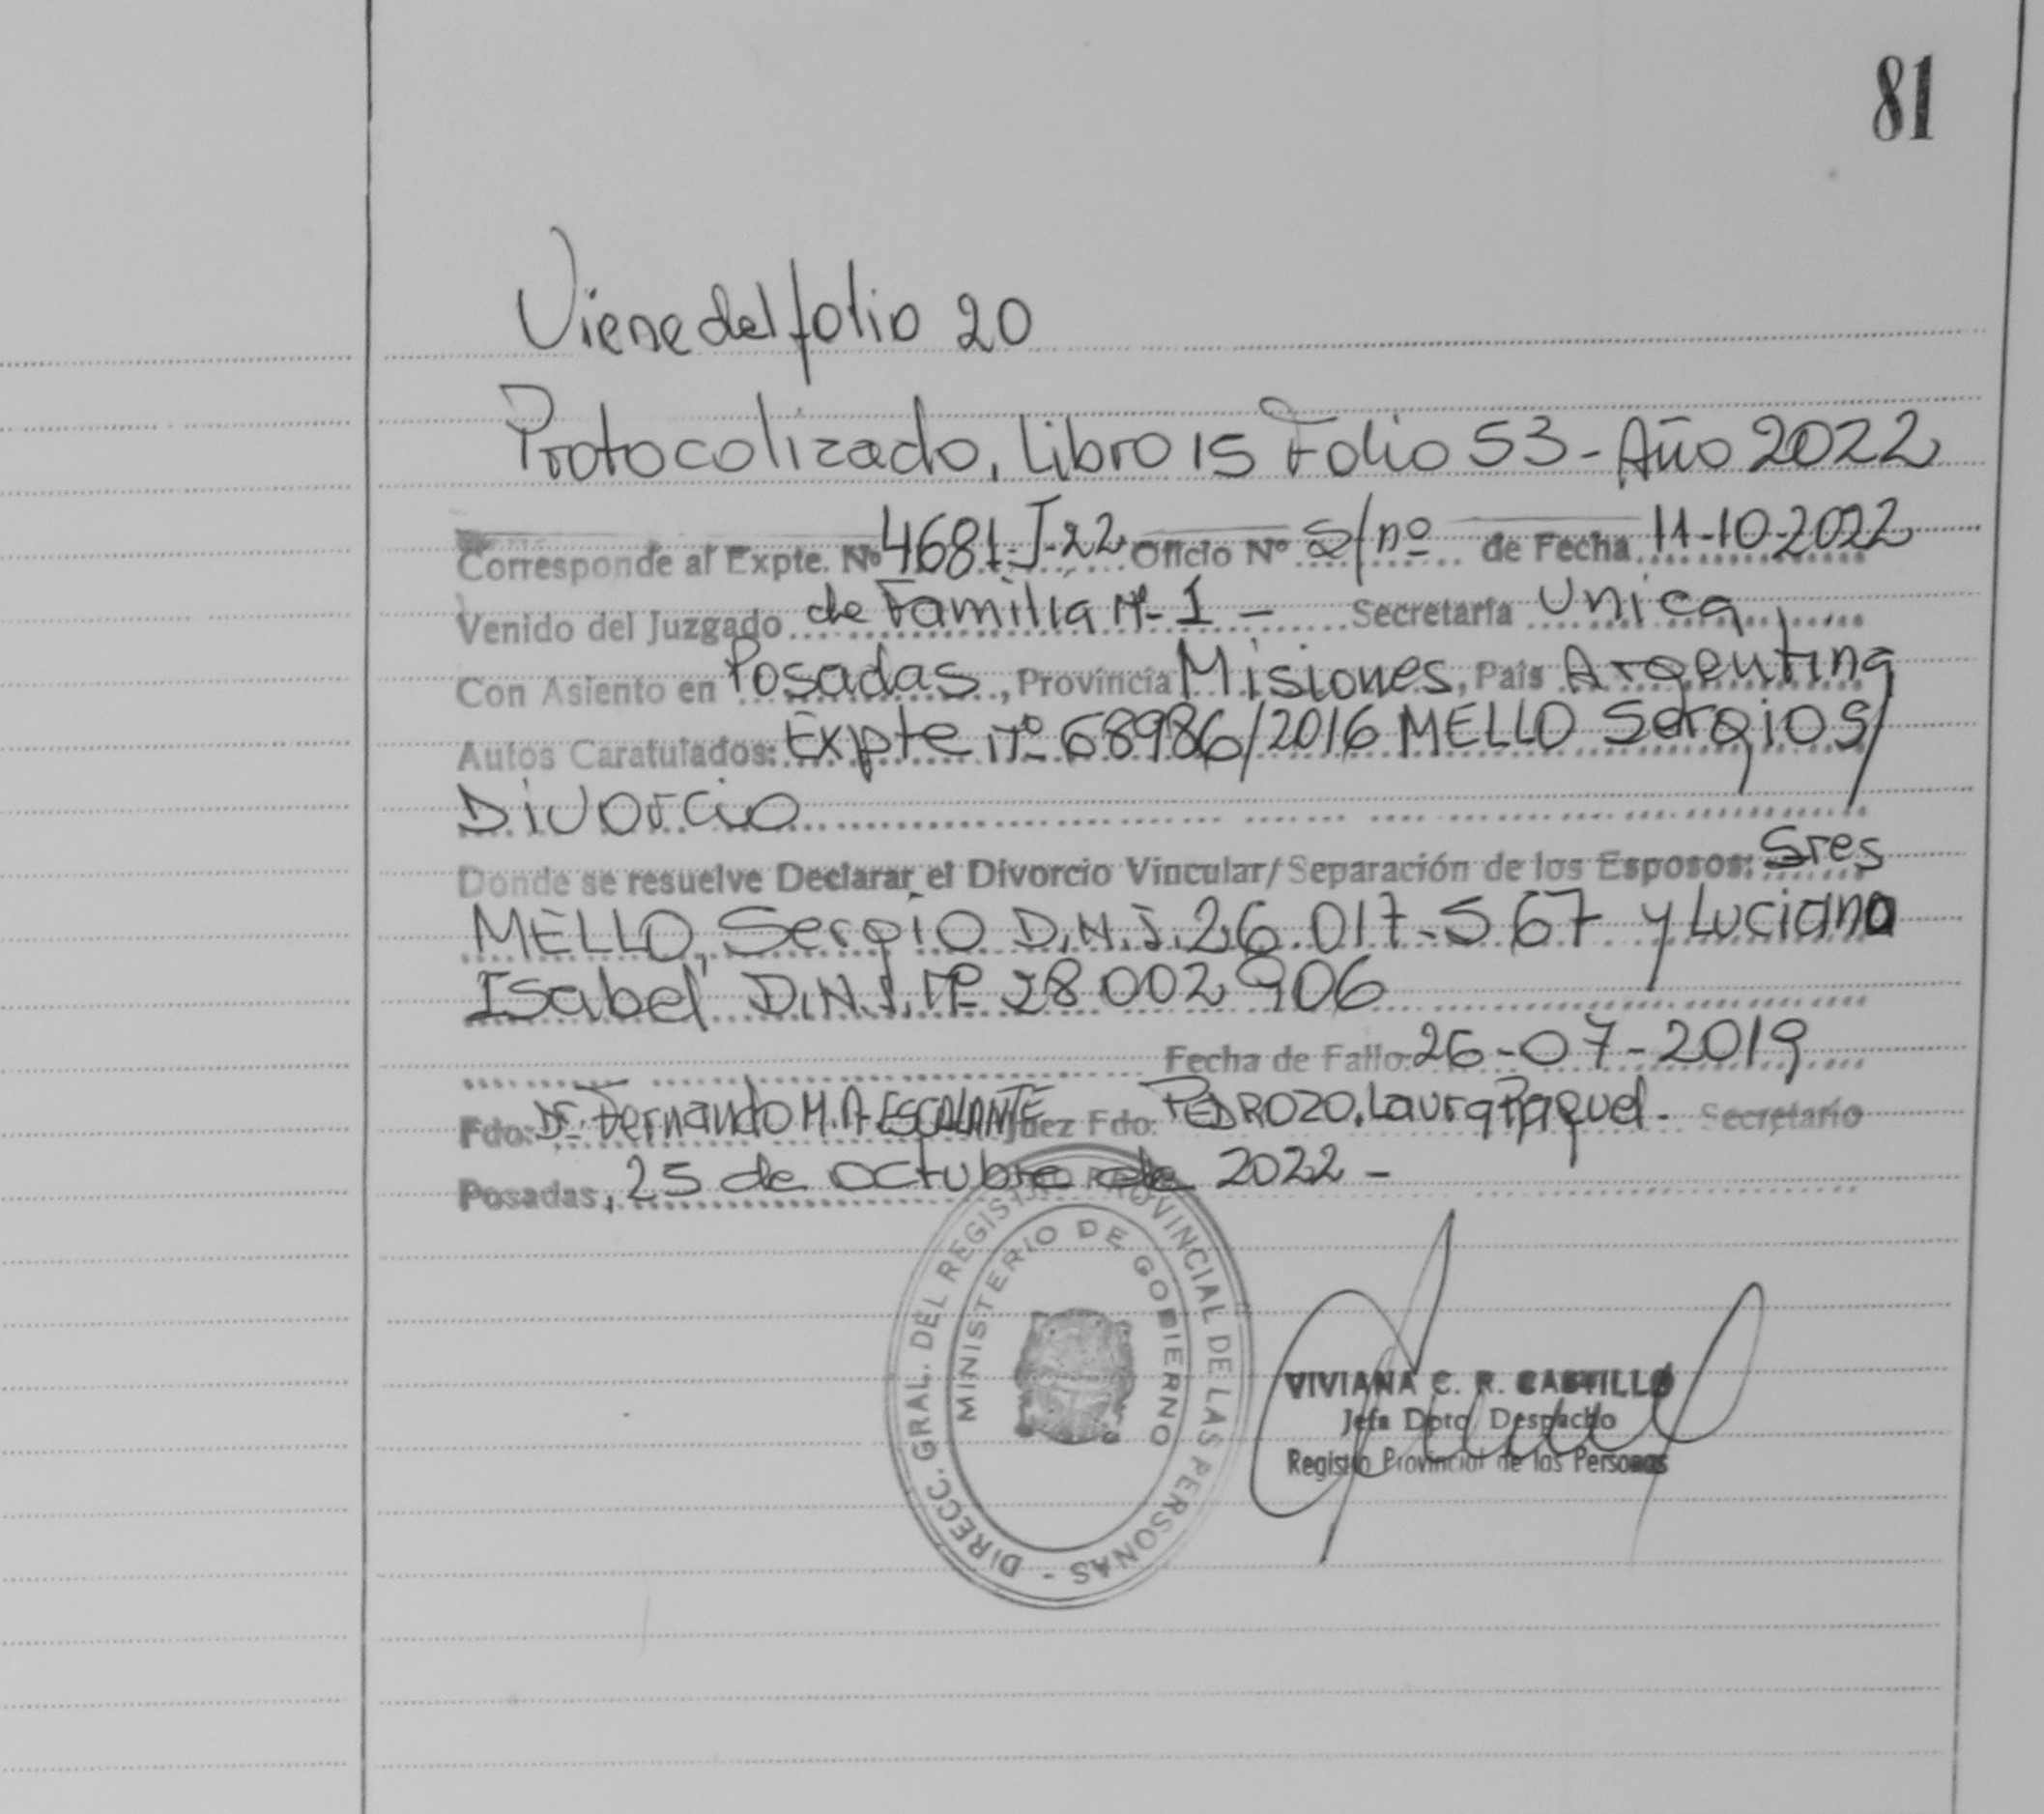 81
Viene del folio 20
Protocolizado, Libro 15 Folio 53 - Año 2022
Corresponde al Expte. Nº 4681-J-22 Oficio Nº S/nº de Fecha 11-10-2022
Venido del Juzgado de Familia Nº 1 - Secretaría Unica
Con Asiento en Posadas, Provincia Misiones, País Argentina
Autos Caratulados: Expte Nº 68986/2016 MELLO Sergio S/
Divorcio
Donde se resuelve Declarar el Divorcio Vincular/Separación de los Esposos: Sres
MELLO, Sergio D.N.I. 26.017.567 y Luciana
Isabel D.N.I. Nº 28002906
Fecha de Fallo: 26-07-2019
Fdo: Dr. Fernando M.A. ESCALANTE Juez Fdo: PEDROZO, Laura Raquel. Secretario
Posadas, 25 de octubre de 2022 -
DIRECC. GRAL. DEL REGISTRO PROVINCIAL DE LAS PERSONAS -
MINISTERIO DE GOBIERNO
VIVIANA C. R. CASTILLO
Jefa Dpto. Despacho
Registro Provincial de las Personas